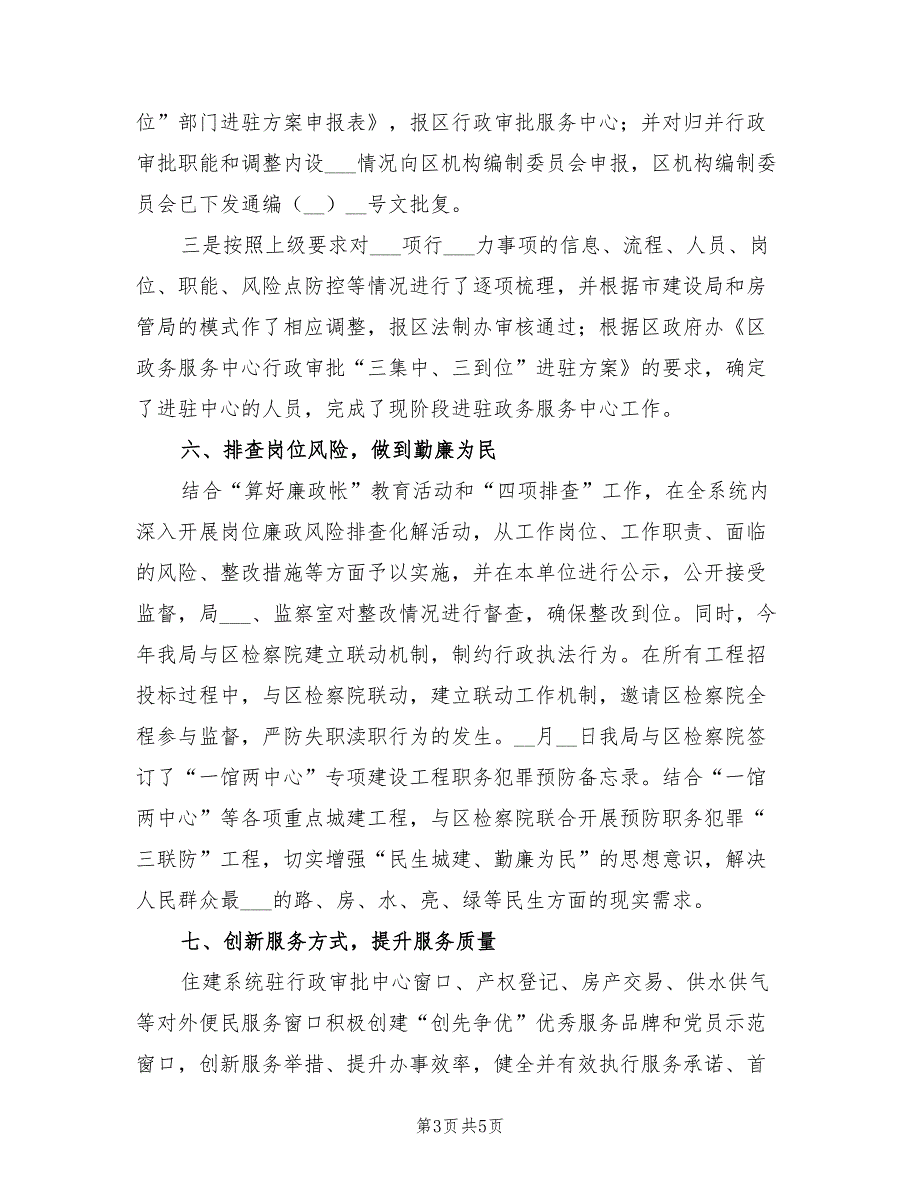 位”部门进驻方案申报表》，报区行政审批服务中心；并对归并行政
审批职能和调整内设___情况向区机构编制委员会申报，区机构编制委
员会已下发通编（__）__号文批复。
三是按照上级要求对___项行___力事项的信息、流程、人员、岗
位、职能、风险点防控等情况进行了逐项梳理，并根据市建设局和房
管局的模式作了相应调整，报区法制办审核通过；根据区政府办《区
政务服务中心行政审批“三集中、三到位”进驻方案》的要求，确定
了进驻中心的人员，完成了现阶段进驻政务服务中心工作。
六、排查岗位风险，做到勤廉为民
结合“算好廉政帐”教育活动和“四项排查”工作，在全系统内
深入开展岗位廉政风险排查化解活动，从工作岗位、工作职责、面临
的风险、整改措施等方面予以实施，并在本单位进行公示，公开接受
监督，局___、监察室对整改情况进行督查，确保整改到位。同时，今
年我局与区检察院建立联动机制，制约行政执法行为。在所有工程招
投标过程中，与区检察院联动，建立联动工作机制，邀请区检察院全
程参与监督，严防失职渎职行为的发生。__月__日我局与区检察院签
订了“一馆两中心”专项建设工程职务犯罪预防备忘录。结合“一馆
两中心”等各项重点城建工程，与区检察院联合开展预防职务犯罪“
三联防”工程，切实增强“民生城建、勤廉为民”的思想意识，解决
人民群众最___的路、房、水、亮、绿等民生方面的现实需求。
七、创新服务方式，提升服务质量
住建系统驻行政审批中心窗口、产权登记、房产交易、供水供气
等对外便民服务窗口积极创建“创先争优”优秀服务品牌和党员示范
窗口，创新服务举措、提升办事效率，健全并有效执行服务承诺、首
第3页共5页